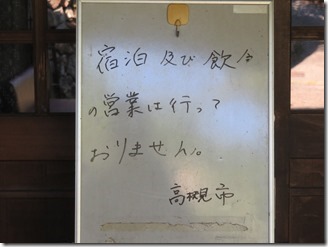 宿泊及び飲食
の営業は行って
おりません。
高槻市